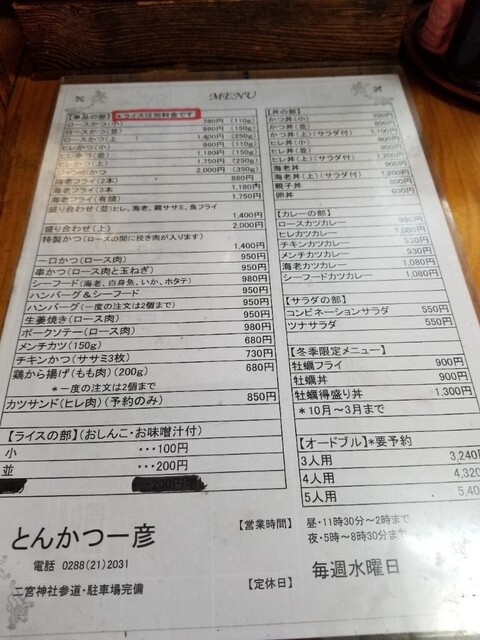 MENU
【単品の部】 *ライスは別料金です
ロースかつ(小) 780円 (110g)
ロースかつ(並) 980円 (150g)
ロースかつ(上) 1,400円 (250g)
ヒレかつ(小) 980円 (110g)
ヒレかつ(並) 1,180円 (150g)
ヒレかつ(上) 1,750円 (250g)
ジャンボかつ 2,000円 (350g)
海老フライ(2本) 880円
海老フライ(3本) 1,180円
海老フライ(有頭) 1,750円
盛り合わせ(並)ヒレ、海老、鶏ササミ、魚フライ
1,400円
盛り合わせ(上) 2,000円
特製かつ(ロースの間に挽き肉が入ります)
1,400円
一口かつ(ロース肉) 950円
串かつ(ロース肉と玉ねぎ) 950円
シーフード(海老、白身魚、いか、ホタテ) 980円
ハンバーグ&シーフード 950円
ハンバーグ(一度の注文は2個まで) 950円
生姜焼き(ロース肉) 950円
ポークソテー(ロース肉) 980円
メンチカツ(150g) 680円
チキンかつ(ササミ3枚) 730円
鶏から揚げ(もも肉)(200g) 680円
*一度の注文は2個まで
カツサンド(ヒレ肉)(予約のみ) 850円
【ライスの部】(おしんこ・お味噌汁付)
小 ・・・100円
並 ・・・200円
【丼の部】
かつ丼(小) 700円
かつ丼(並)
かつ丼(上)(サラダ付)
ヒレ丼(並)
ヒレ丼(上)(サラダ付)
海老丼
海老丼(上)(サラダ付) 1,200円
親子丼
卵丼
【カレーの部】
ロースカツカレー 980円
ヒレカツカレー 1,080円
チキンカツカレー 930円
メンチカツカレー 930円
海老カツカレー 1,080円
シーフードカツカレー 1,080円
【サラダの部】
コンビネーションサラダ 550円
ツナサラダ 550円
【冬季限定メニュー】
牡蠣フライ 900円
牡蠣丼 900円
牡蠣得盛り丼 1,300円
*10月~3月まで
【オードブル】*要予約
3人用 3,240
4人用 4,320
5人用 5,40
とんかつ一彦
電話 0288(21)2031
二宮神社参道・駐車場完備
【営業時間】 昼・11時30分~2時まで
夜・5時~8時30分まで
【定休日】 毎週水曜日